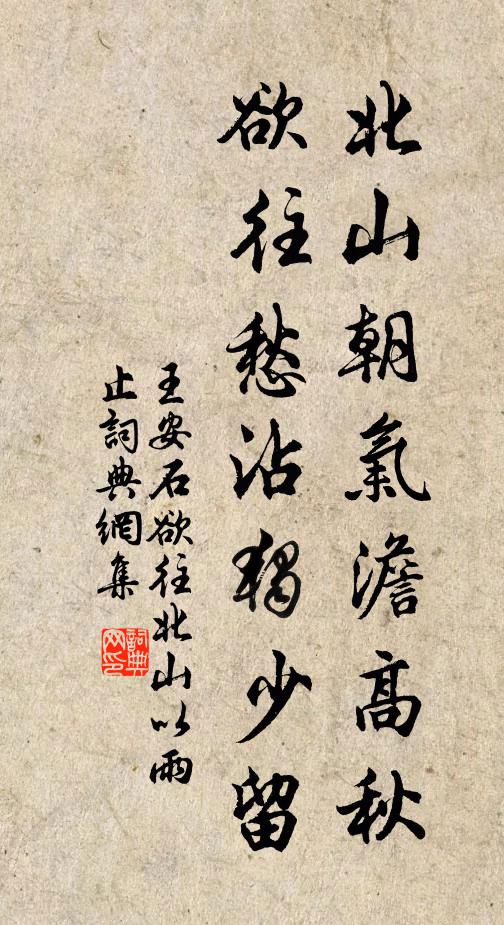 北山朝氣澹高秋
欲往愁沾獨少留
王安石欲往北山以雨
止詞典網集
詞典
网印